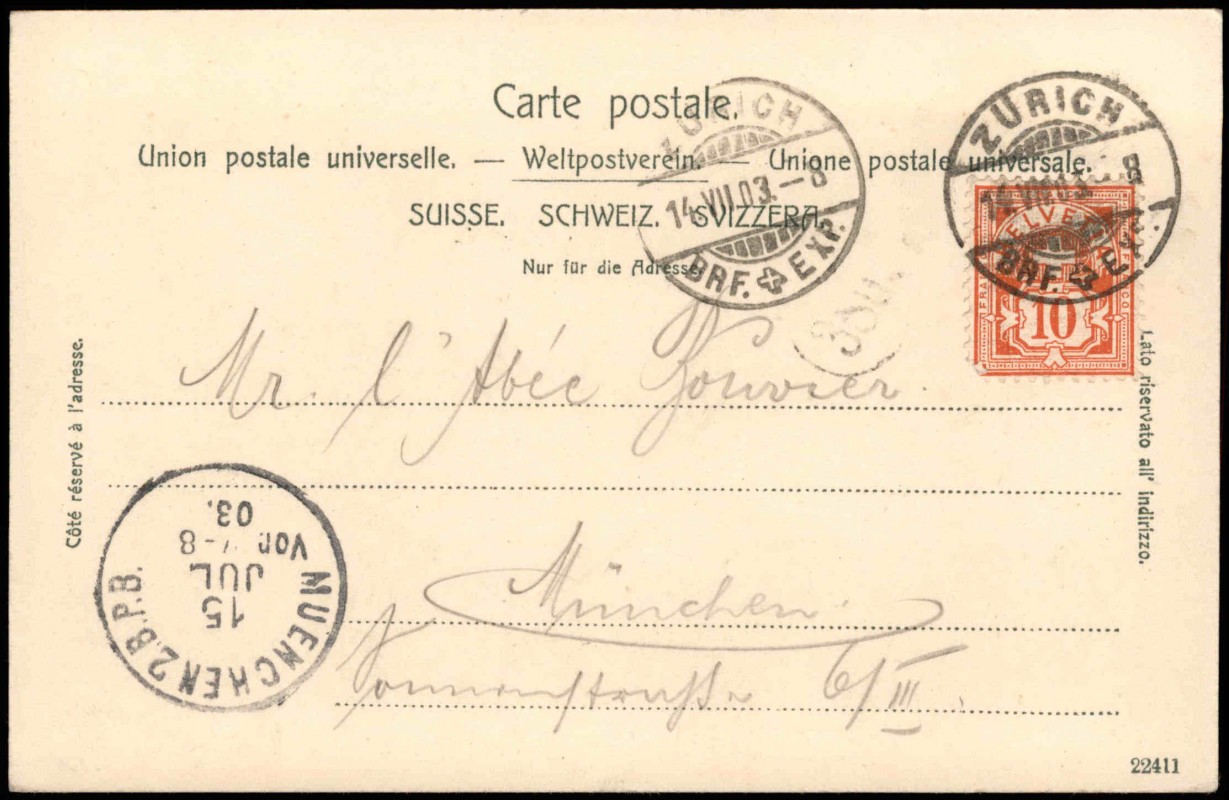 Carte postale.
Union postale universelle. — Weltpostverein. — Unione postale universale.
SUISSE. SCHWEIZ. SVIZZERA.
Nur für die Adresse.
ZÜRICH
14.VII.03.–8
BRF. EXP.
ZÜRICH
14.VII.03.–8
BRF. EXP.
HELVETIA
FRANCO
10
Mr. l'Abée Bouvier
München.
Sonnenstraße 6/III
Côté réservé à l'adresse.
Lato riservato all' indirizzo.
MUENCHEN 2.B.P.B.
15
JUL
Vor 7-8
03.
22411